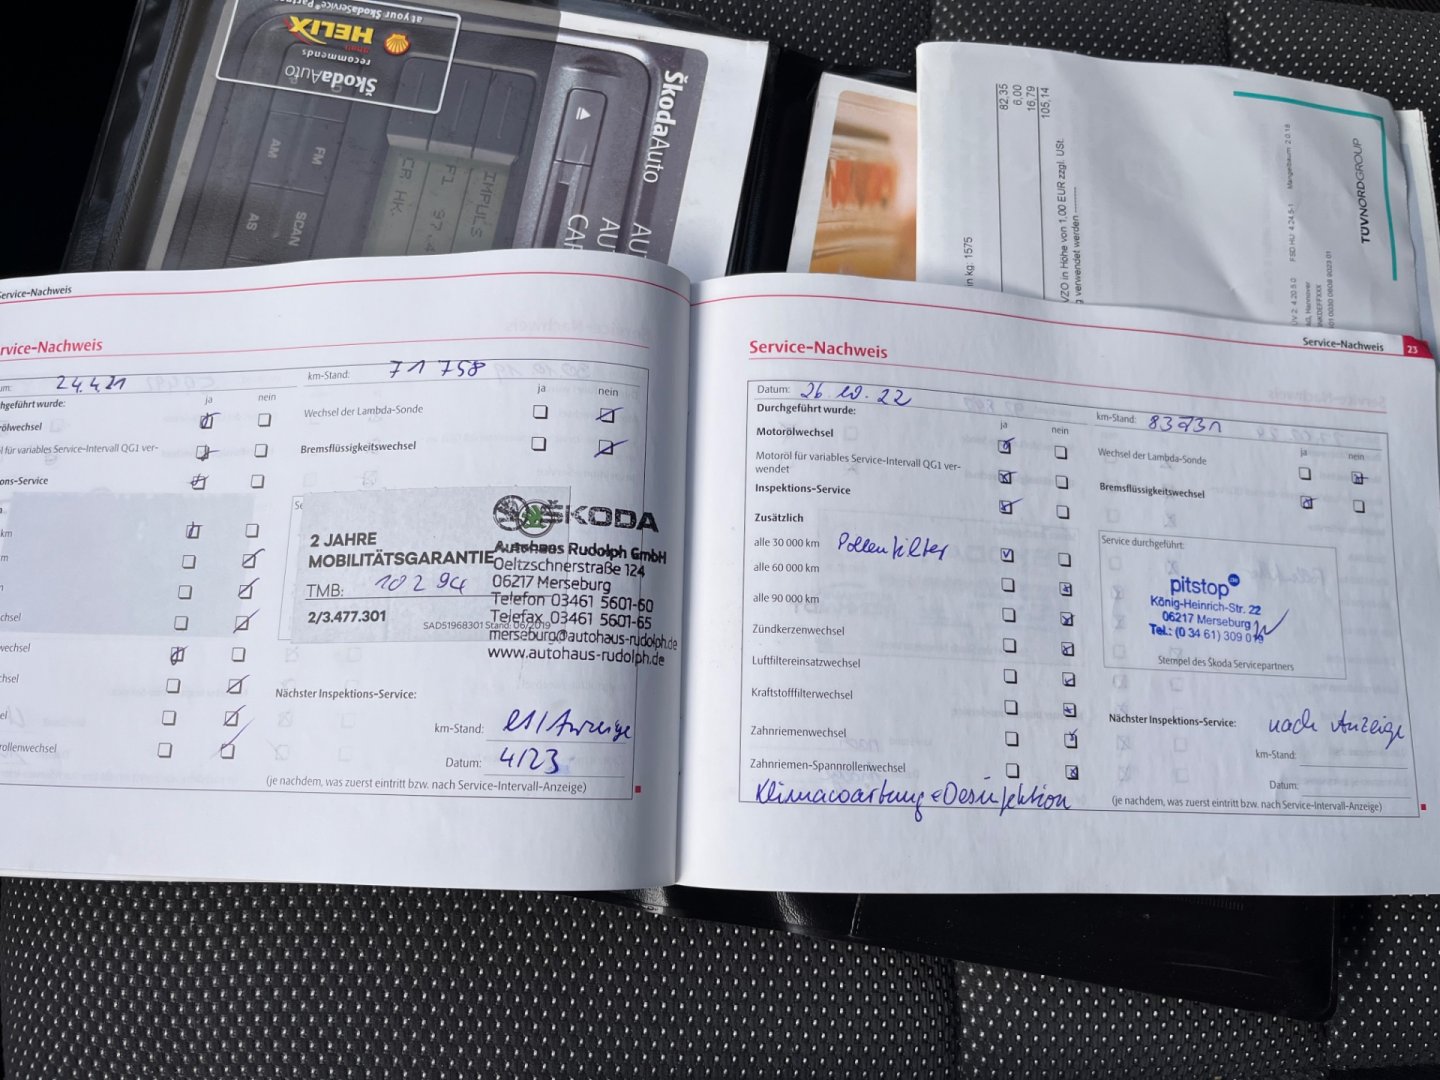 at your ŠkodaService® Partner
Shell
HELIX
recommends
ŠkodaAuto
ŠkodaAuto
FM
AM
SCAN
AS
IMPULS
F1 97.
CR HK
82,35
6,00
16,79
105,14
VZO in Höhe von 1,00 EUR zzgl. USt.
verwendet werden
in kg: 1575
FSD HU: 4.24.5-1
Mangelbaum 2.0.18
TÜVNORDGROUP
Service-Nachweis
rvice-Nachweis
um: 24.4.21
km-Stand: 71 758
hgeführt wurde:
ja nein
ja nein
rölwechsel
Wechsel der Lambda-Sonde
l für variables Service-Intervall QG1 ver-
Bremsflüssigkeitswechsel
ons-Service
km
2 JAHRE
MOBILITÄTSGARANTIE
TMB: 10294
2/3.477.301
SAD51968301 Stand: 06/2019
ŠKODA
Autohaus Rudolph GmbH
Oeltzschnerstraße 124
06217 Merseburg
Telefon 03461 5601-60
Telefax 03461 5601-65
merseburg@autohaus-rudolph.de
www.autohaus-rudolph.de
chsel
wechsel
hsel
el
rollenwechsel
Nächster Inspektions-Service:
km-Stand:
Anzeige
Datum: 4/23
(je nachdem, was zuerst eintritt bzw. nach Service-Intervall-Anzeige)
Service-Nachweis 23
Service-Nachweis
Datum: 26 10. 22
km-Stand: 83731
Durchgeführt wurde:
ja nein
ja nein
Motorölwechsel
Wechsel der Lambda-Sonde
Motoröl für variables Service-Intervall QG1 ver-
wendet
Bremsflüssigkeitswechsel
Inspektions-Service
Zusätzlich
Service durchgeführt:
alle 30 000 km Pollenfilter
alle 60 000 km
alle 90 000 km
Zündkerzenwechsel
Luftfiltereinsatzwechsel
Kraftstofffilterwechsel
Zahnriemenwechsel
Zahnriemen-Spannrollenwechsel
Klimawartung + Desinfektion
pitstop
König-Heinrich-Str. 22
06217 Merseburg
Tel.: (0 34 61) 309 019
Stempel des Škoda Servicepartners
Nächster Inspektions-Service: nach Anzeige
km-Stand:
Datum:
(je nachdem, was zuerst eintritt bzw. nach Service-Intervall-Anzeige)